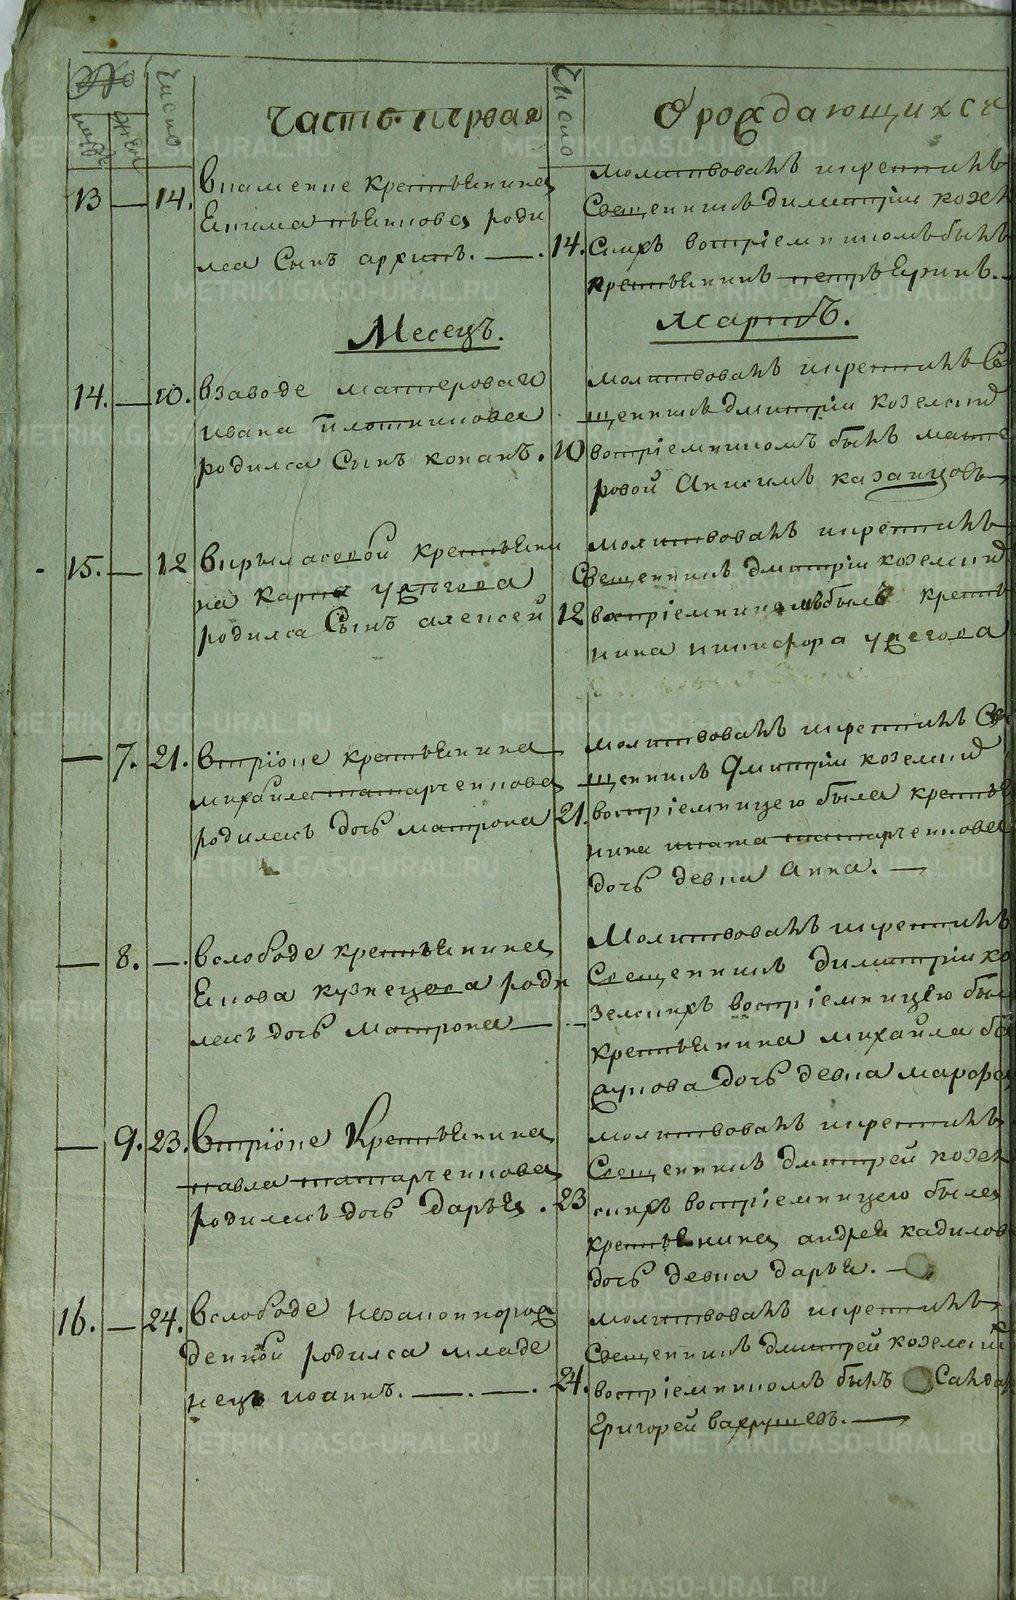 Число
Часть первая
Число
О рождающихся
муж
жен
13 — 14. Взнамение крестьянина
Екима пьянкова роди
лса Сынъ архипъ. — . 14.
молитвовалъ икрестилъ
Священникъ димитрiи козел
скихъ востріемникомъ былъ
крестьянинъ петръ
Месецъ.
Мартъ.
14. — 10. Взаводе мастероваго
ивана плотникова
родилса Сынъ конанъ. 10
молитвовалъ икрестилъ Св
щенникъ дмитрiи козелски
востріемникомъ былъ масте
ровой Анисимъ казанцовъ
15. — 12 крестьяни
на карпа устюгова
родилса Сынъ алексей 12
молитвовалъ икрестилъ
Священникъ дмитрiи козелски
востріемникомъ былъ крестья
нина никифора
— 7. 21. Втрiоке крестьянина
михайла татарченкова
родилась дочь матрона 21.
молитвовалъ икрестилъ Св
щенникъ Дмитрiи козелски
востріемницею была крестья
нина игната татарченкова
дочь девка Анна. —
— 8. — . Вслободе крестьянина
Якова кузнецова роди
лась дочь матрона —
Молитвовалъ икрестилъ
Священникъ димитрiи ко
зелскихъ востріемницею был
крестьянина михайла
дочь девка марфа
— 9. 23. Втрiоке Крестьянина
павла татарченкова
родилась дочь дарья. 23
молитвовалъ икрестилъ
Священникъ дмитрей козел
скихъ востріемницею была
крестьянина андрея кадилов
дочь девка дарья. —
16. — 24. Вслободе незаконнорож
денной родилса младе
нецъ иоаннъ. — . — . 24.
молитвовалъ икрестилъ
Священникъ дмитрей козелски
востріемникомъ былъ Салда
Григорей вахрушевъ. —
METRIKI.GASO-URAL.RU